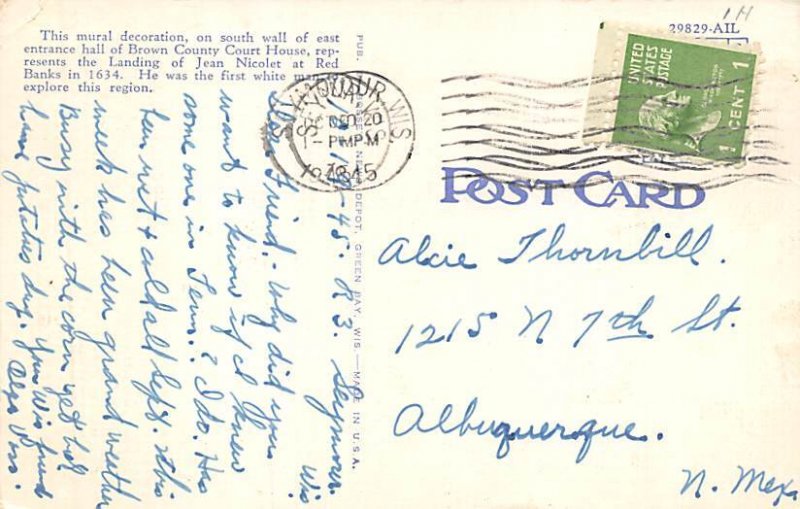 This mural decoration, on south wall of east
entrance hall of Brown County Court House, rep-
resents the Landing of Jean Nicolet at Red
Banks in 1634. He was the first white man to
explore this region.
29829-AIL
1H
UNITED
STATES
POSTAGE
1 CENT 1
SEYMOUR, WIS.
1- PM
1945
POST CARD
PUB. NEWS DEPOT, GREEN BAY, WIS.—MADE IN U.S.A.
-45. R 3. Seymour.
Wis
Friend.- Why did you
want to know if I knew
some one in Tenn.? I do. Has
been wet & cold all Sept. this
week has been grand weather
Busy with the corn yet but
have potatoes dug. Your Wis friend
Wis.
Alcie Thornbill.
1215 N 7th St.
Albuquerque.
N. Mex